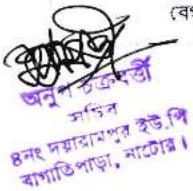 বে
অনুপ চক্রবর্ত্তী
সচিব
৪নং দয়ারামপুর ইউ.পি
বাগাতিপাড়া, নাটোর।